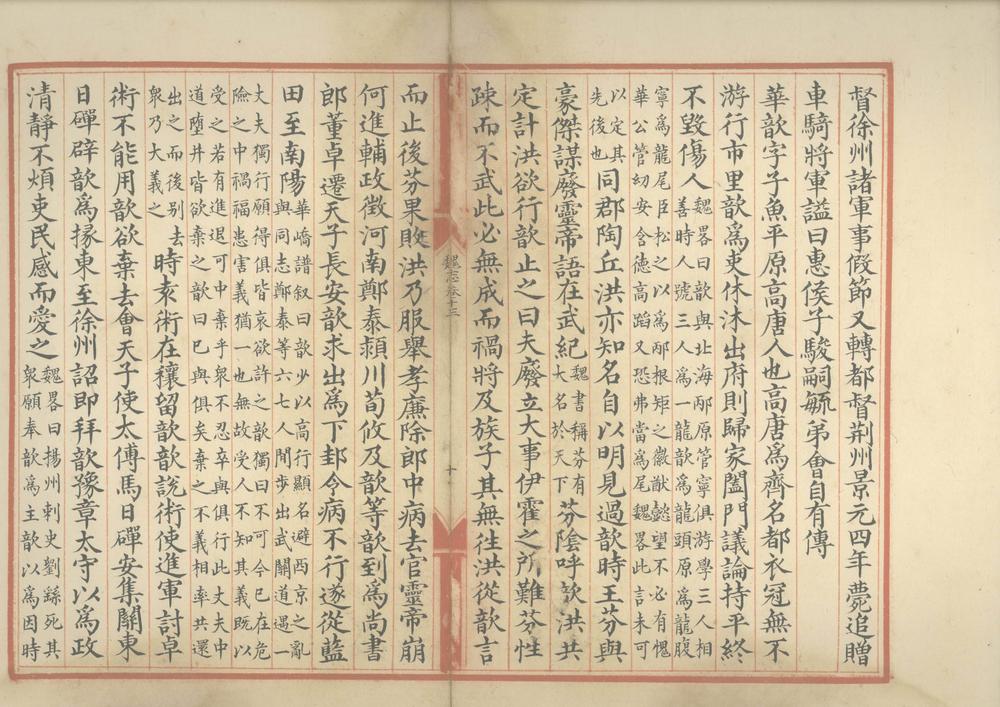 督徐州諸軍事假節又轉都督荆州景元四年薨追贈
車騎將軍諡曰惠侯子駿嗣毓弟會自有傳
華歆字子魚平原高唐人也高唐爲齊名都衣冠無不
游行市里歆爲吏休沐出府則歸家闔門議論持平終
不毀傷人
魏畧曰歆與北海邴原管寧俱游學三人相
善時人號三人爲一龍歆爲龍頭原爲龍腹
寧爲龍尾臣松之以爲邴根矩之徽猷懿望不必有愧
華公管幼安含德高蹈又恐弗當爲尾魏畧此言未可
以定其
先後也
同郡陶丘洪亦知名自以明見過歆時王芬與
豪傑謀廢靈帝語在武紀
魏書稱芬有
大名於天下
芬陰呼歆洪共
定計洪欲行歆止之曰夫廢立大事伊霍之所難芬性
疎而不武此必無成而禍將及族子其無往洪從歆言
魏志卷十三
十
而止後芬果敗洪乃服舉孝廉除郎中病去官靈帝崩
何進輔政徵河南鄭泰潁川荀攸及歆等歆到爲尚書
郎董卓遷天子長安歆求出爲下邽令病不行遂從藍
田至南陽
華嶠譜叙曰歆少以高行顯名避西京之亂
與同志鄭泰等六七人間步出武關道遇一
丈夫獨行願得俱皆哀欲許之歆獨曰不可今已在危
險之中禍福患害義猶一也無故受人不知其義既以
受之若有進退可中棄乎衆不忍卒與俱行此丈夫中
道墮井皆欲棄之歆曰已與俱矣棄之不義相率共還
出之而後别去
衆乃大義之
時袁術在穰留歆歆說術使進軍討卓
術不能用歆欲棄去會天子使太傅馬日磾安集關東
日磾辟歆爲掾東至徐州詔即拜歆豫章太守以爲政
清靜不煩吏民感而愛之
魏畧曰揚州刺史劉繇死其
衆願奉歆爲主歆以爲因時